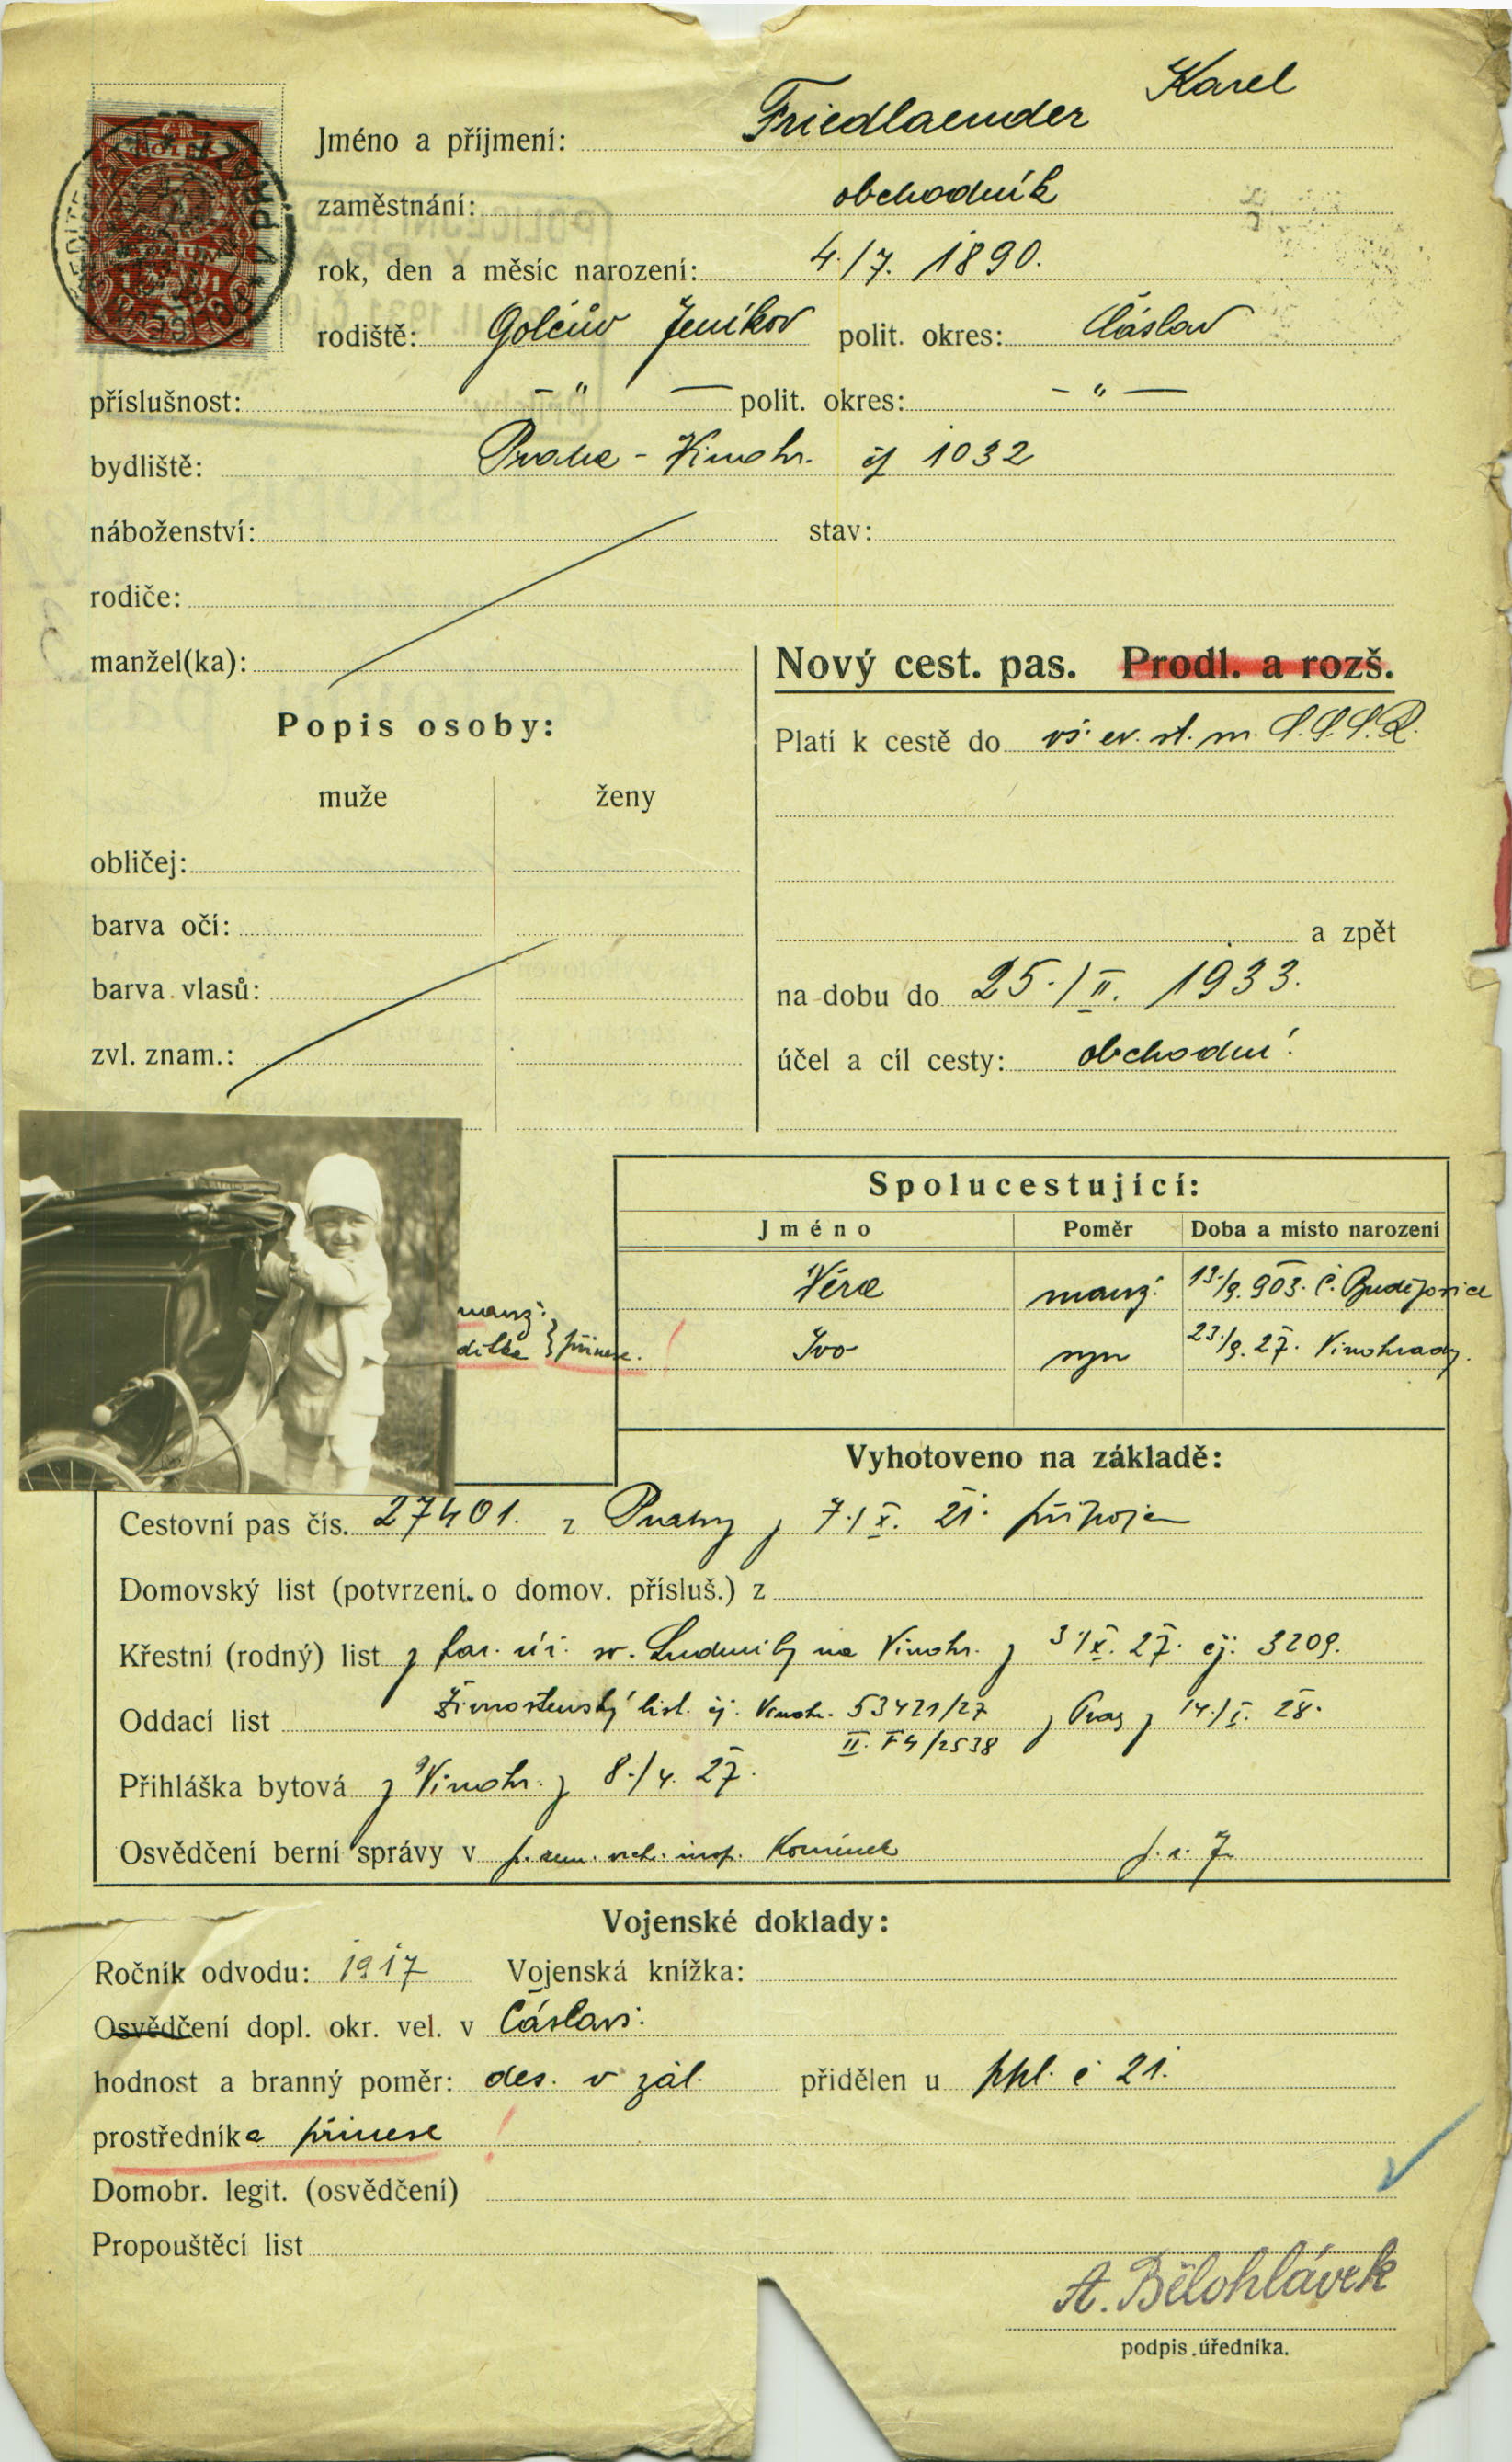 Karel
Jméno a příjmení: Friedlaender
zaměstnání: obchodník
rok, den a měsíc narození: 4./7. 1890.
rodiště: Golčův Jeníkov polit. okres: Čáslav
příslušnost: — " — polit. okres: — " —
bydliště: Praha - Vinohr. čj 1032
náboženství: stav:
rodiče:
manžel(ka):
Nový cest. pas. Prodl. a rozš.
Popis osoby:
Platí k cestě do vš. ev. st. m. S.S.S.R.
muže ženy
obličej:
barva očí:
a zpět
barva vlasů:
na dobu do 25./II. 1933.
zvl. znam.:
účel a cíl cesty: obchodní.
Spolucestující:
Jméno Poměr Doba a místo narození
Věra manž. 13./9. 903. Č. Budějovice
manž.
dítka } přinese.
Ivo syn 23./9. 27. Vinohrady.
Vyhotoveno na základě:
Cestovní pas čís. 27401. z Prahy z 7./X. 21. připojen
Domovský list (potvrzení o domov. přísluš.) z
Křestní (rodný) list z far. úř. sv. Ludmily na Vinohr. z 3./X. 27. čj. 3209.
Oddací list Živnostenský list. čj. Vinohr. 53421/27 z Prahy z 14./I. 28.
II. F4/2538
Přihláška bytová z Vinohr. z 8./4. 27.
Osvědčení berní správy v insp. Komínek
Vojenské doklady:
Ročník odvodu: 1917 Vojenská knížka:
Osvědčení dopl. okr. vel. v Čáslavi.
hodnost a branný poměr: des. v zál. přidělen u ppl. č 21.
prostředníka přinese !
Domobr. legit. (osvědčení)
Propouštěcí list
A. Bělohlávek
podpis úředníka.